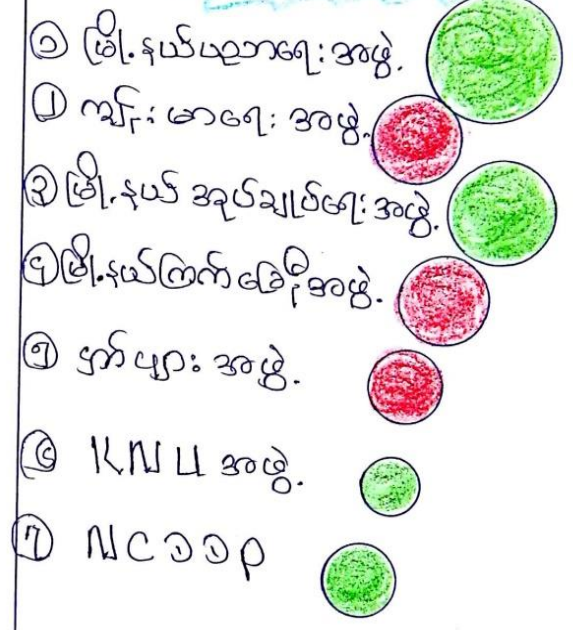 ၁ မြို့နယ်ပညာရေးအဖွဲ့.
၂ ကျန်းမာရေးအဖွဲ့.
၃ မြို့နယ် အုပ်ချုပ်ရေးအဖွဲ့.
၄ မြို့နယ်ကြက်ခြေနီအဖွဲ့.
၅ အဖွဲ့.
၆ KNU အဖွဲ့.
၇ NCDDP